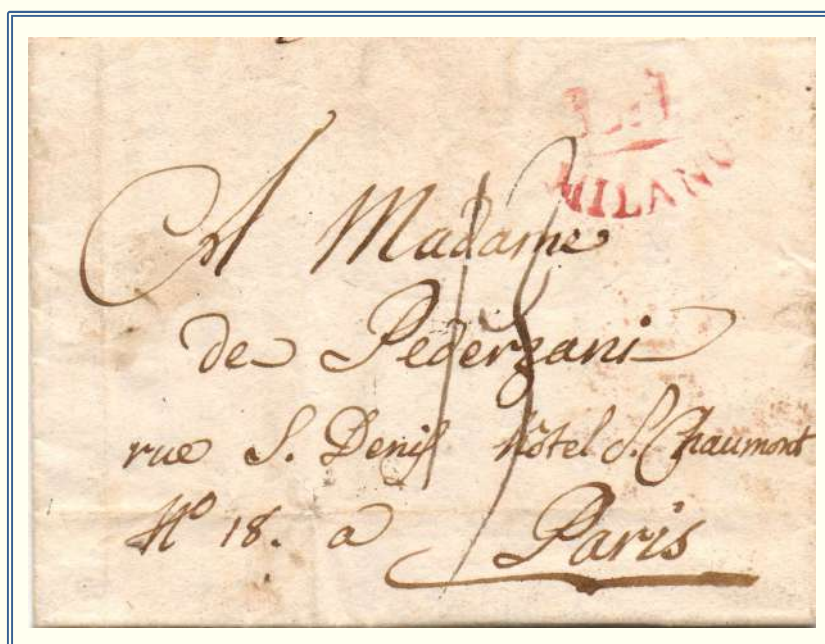 MILANO
A Madame
de Pederzani
rue S. Denis hôtel S. Chaumont
No 18. a
Paris